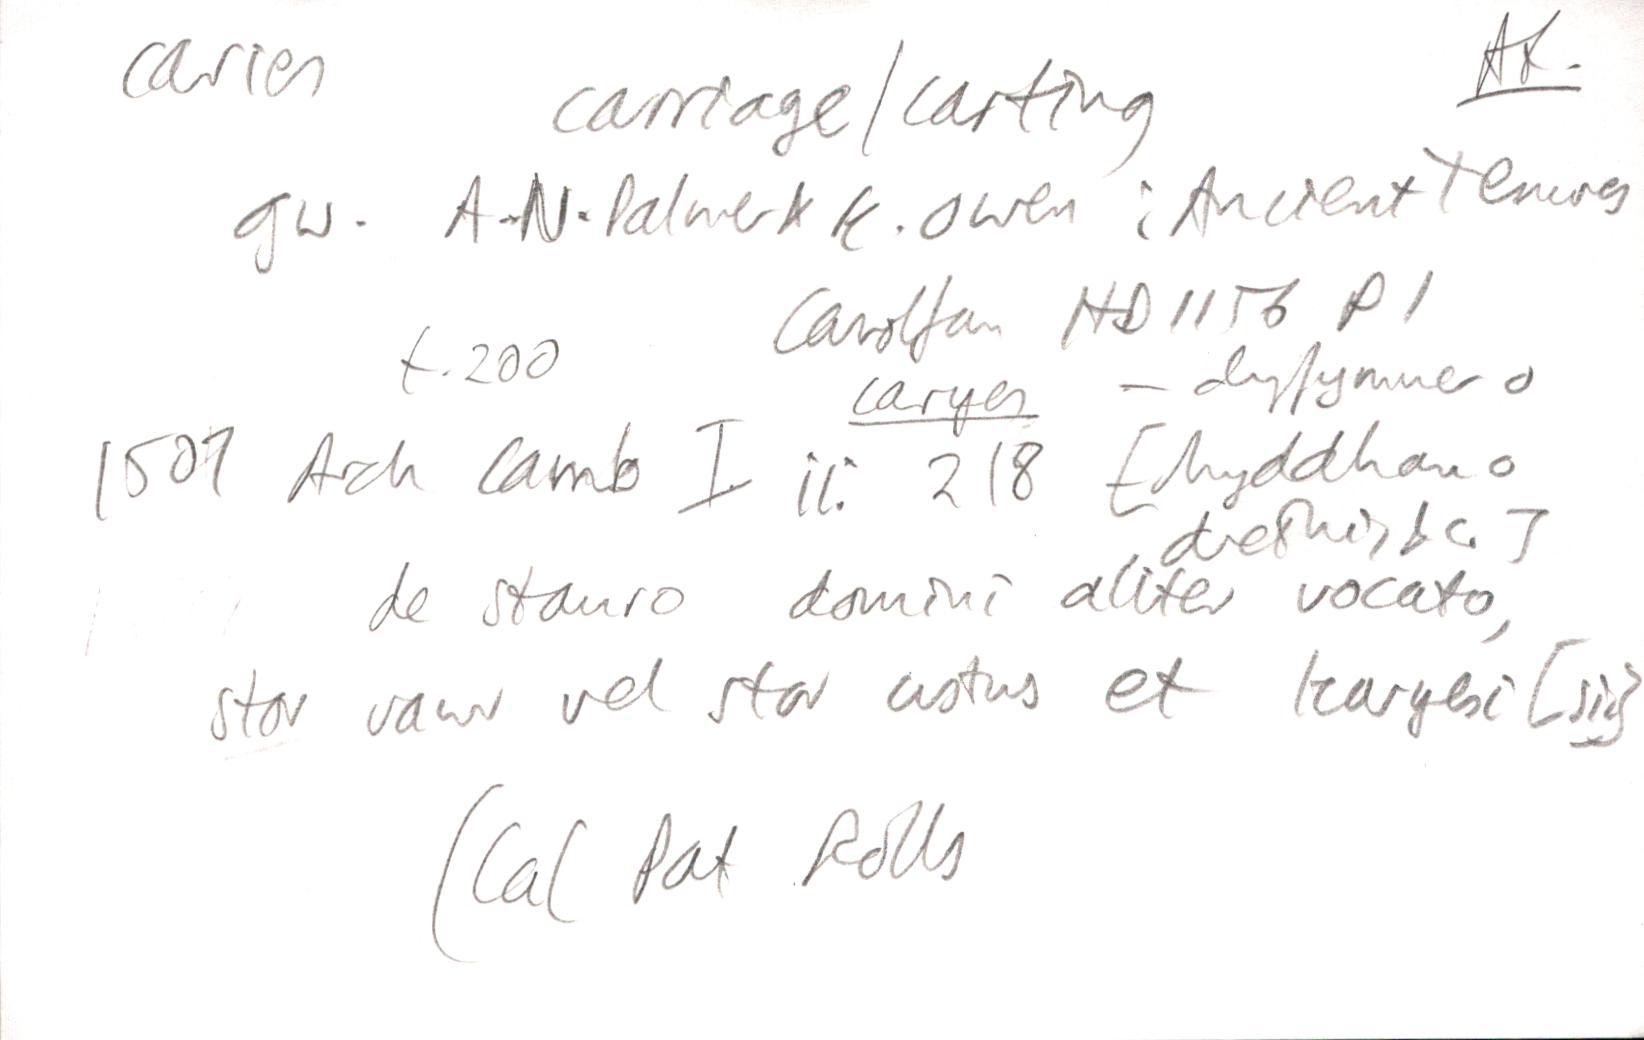 caries
AL.
carriage/carting
gw. A.N. Palmer & E. Owen : Ancient Tenures
t. 200
Canolfan HD 1156 P1
caryes - dyfynnu o
1507 Arch Camb I ii: 218 [rhyddhau o
drethi, &c.]
de stauro domini aliter vocato,
stor vawr vel stor ustus et karyesi [sic]
(Cal Pat Rolls